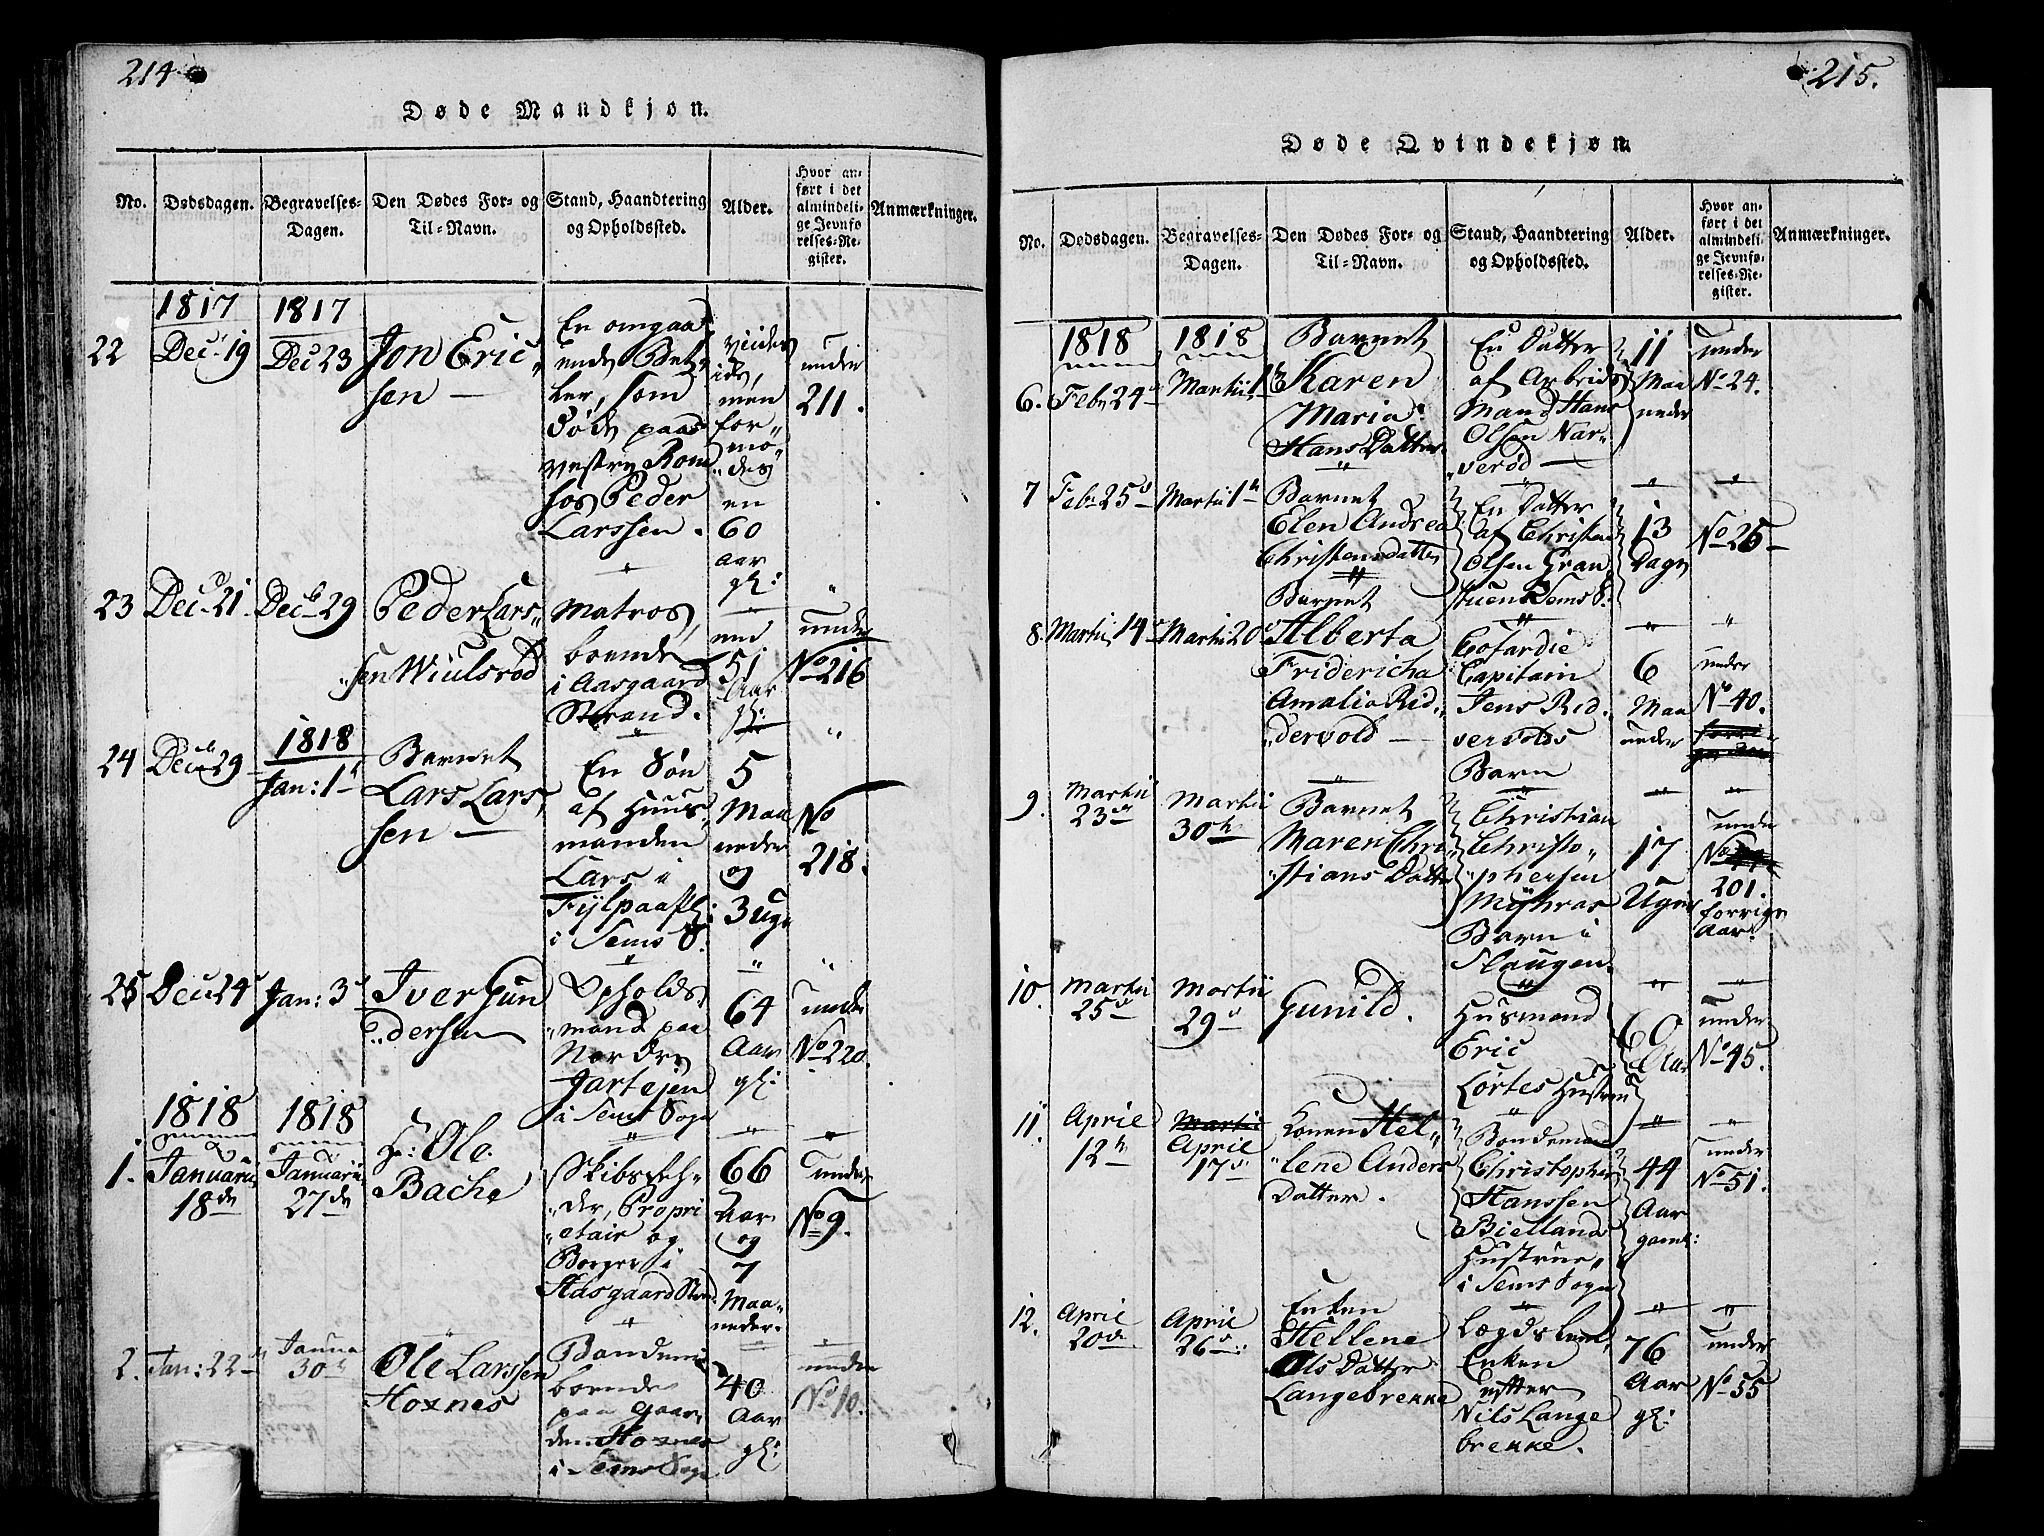 214
Døde Mandkjøn.
No.
Dødsdagen.
Begravelses-
Dagen.
Den Dødes For- og
Til-Navn.
Stand, Haandtering
og Opholdssted.
Alder.
Hvor an-
ført i det
almindeli-
ge Jevnfø
relses-Re-
gister.
Anmærkninger.
22
1817
Dec 19
1817
Dec 23
Jon Eric-
sen
En omgaa-
ende Bet-
ler, som
døde paa
vestre Rom
hos Peder
Larssen.
viides
ide,
men
for-
mo-
des
en
60
aar
gl:
under
211.
23
Dec 21.
Decb 29
Peder Lars-
sen Wiulsrød
Matros,
boende
i Aasgaard
Strand.
51
Aar
gl:
under
No 216
24
Dec 29
1818
Jan: 1
Barnet
Lars Lars
sen
En Søn
af Huus-
manden
Lars i
i Sems S.
5
Maa
neder
og
3 Uge
No
218.
25
Dec 24
Jan: 3
Iver Gun
dersen
Opholds-
mand paa
Nordre
Jartejen
i Sems Sogn
64
Aar
gl:
under
No 220
1.
1818
Januarii
18de
1818
Januarii
27de
Hr: Ole
Bache
Skibsrhe-
der, Propri
etair og
Borger i
Aasgaard Strand
66
Aar
og
7
Maa-
neder.
under
No 9.
2.
Jan: 22
Janua
30
Ole Larssen
Hoxnes
Bondem
boende
paa Gaar-
den Hoxnes
i Sems Sogn
40
Aar
gl:
under
No 10.
215.
Døde Qvindekjøn
No.
Dødsdagen.
Begravelses-
Dagen.
Den Dødes For- og
Til-Navn.
Stand, Haandtering
og Opholdssted.
Alder.
Hvor an-
ført i det
almindeli-
ge Jevnfø-
relses-Re-
gister.
Anmærkninger.
6.
1818
Feb: 24
1818
Martii 1
Barnet
Karen
Maria
Hans Datter
En Datter
af Arbeids
Mand Hans
Olsen Nar-
verød
11
Maa
neder
under
No 24.
7
Feb: 25
Martii 1
Barnet
Elen Andrea
Christensdatter
En Datter
af Christen
Olsen Gran
stuen Sems S:
13
Dage
No 25
8.
Martii 14
Martii 20
Barnet
Alberta
Fridericha
Amalia Rid-
dervold
Cofardie
Capitain
Jens Rid-
dervolds
Barn
6
Maa
neder
under
No 40.
9.
Martii
23
Martii
30
Barnet
Maren Chri-
stians Datter
Christian
Christo-
phersen
Myhras
Barn i
Slaugen.
17
Uger
under
No
201.
forrige
Aar.
10.
Martii
25
Martii
29
Gunild.
Husmand
Eric
Lørtes Hustrue
60
Aar
under
No 45.
11.
April
12
Martii
April
17
Konen Hel-
lene Anders
Datter.
Bondemand
Christopher
Hanssen
Biellands
Hustrue,
i Sems Sogn
44
Aar
gaml:
under
No 51.
12.
April
20
April
26
Enken
Hellene
Ols Datter
Langebrekke
Lægdslem,
Enken
eftter
Nils Lange
brekke.
76
Aar
gl:
under
No 55